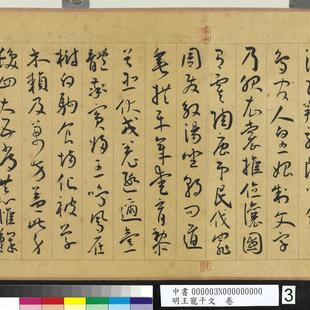 鳥官人皇始制文字
乃服衣裳推位讓國
有虞陶唐弔民伐罪
周發殷湯坐朝問道
垂拱平章愛育黎
首臣伏戎羌遐邇壹
體率賓歸王鳴鳳在
樹白駒食場化被草
木賴及萬方蓋此身
髮四大五常恭惟鞠
中書 000003N000000000
明王寵千文 卷
3